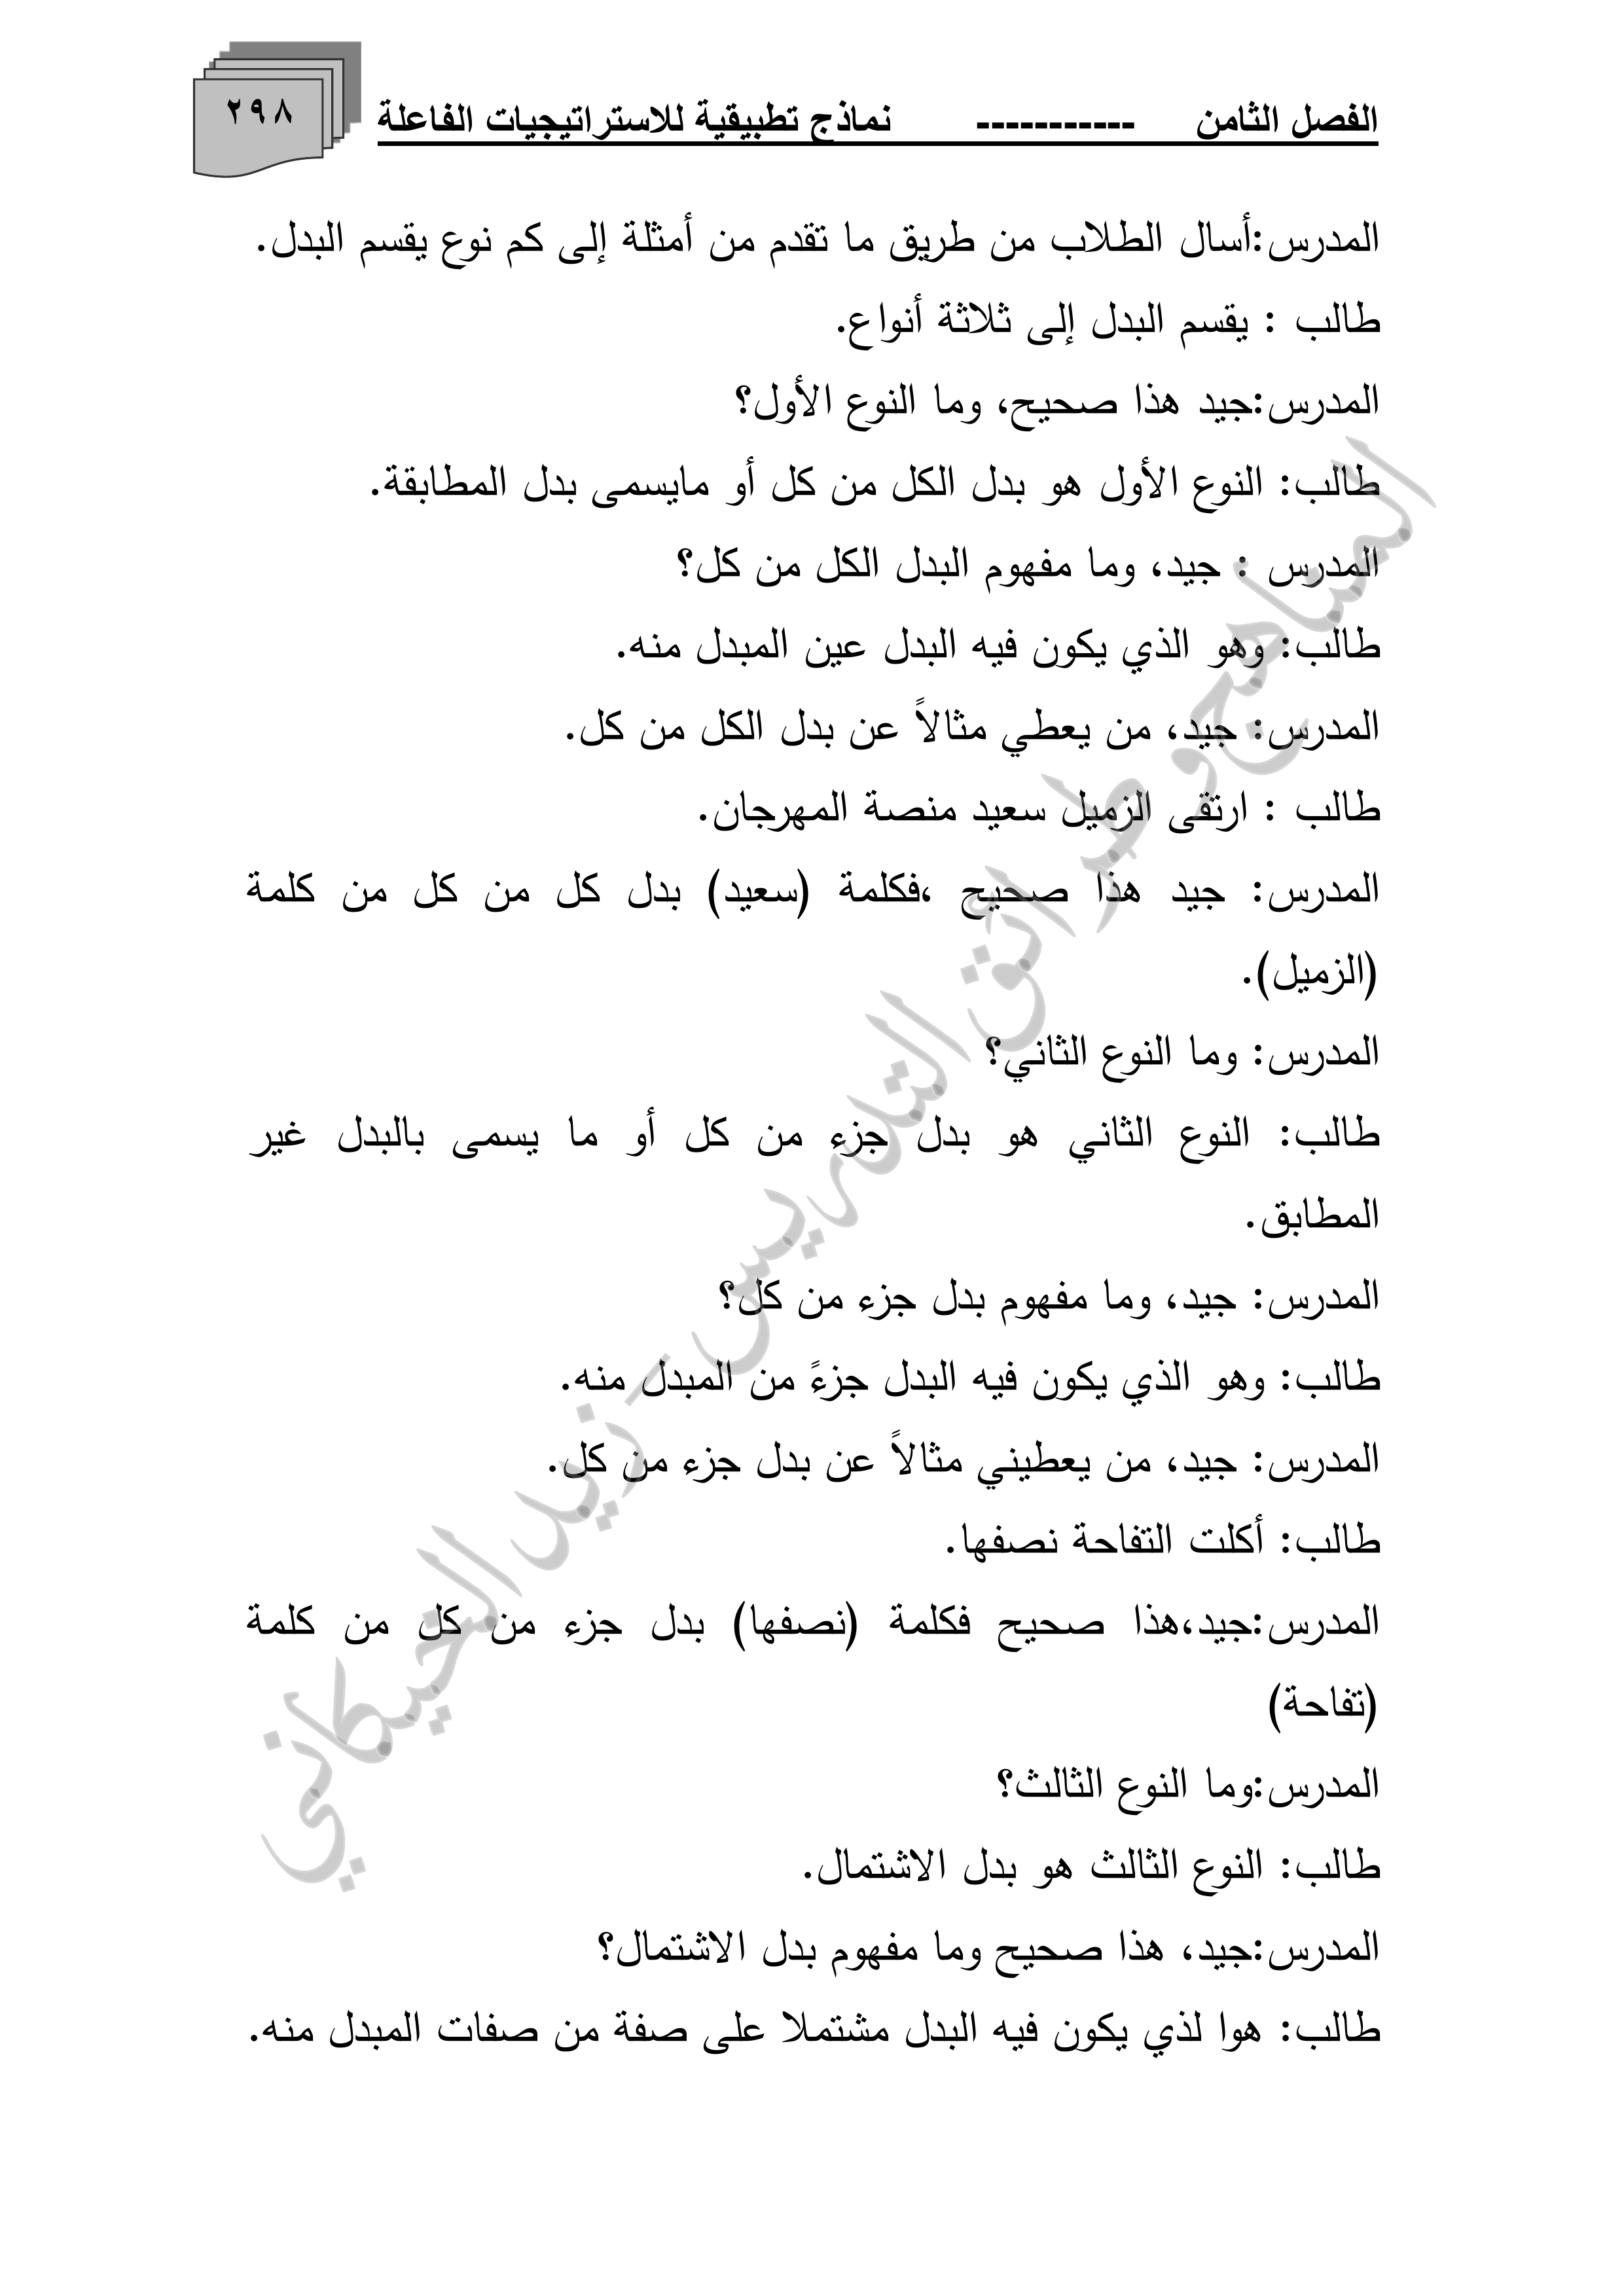 الفصل الثامن ----------- نماذج تطبيقية للاستراتيجيات الفاعلة
٢٩٨
المدرس:أسال الطلاب من طريق ما تقدم من أمثلة إلى كم نوع يقسم البدل.
طالب : يقسم البدل إلى ثلاثة أنواع.
المدرس:جيد هذا صحيح، وما النوع الأول؟
طالب: النوع الأول هو بدل الكل من كل أو مايسمى بدل المطابقة.
المدرس : جيد، وما مفهوم البدل الكل من كل؟
طالب: وهو الذي يكون فيه البدل عين المبدل منه.
المدرس: جيد، من يعطي مثالاً عن بدل الكل من كل.
طالب : ارتقى الزميل سعيد منصة المهرجان.
المدرس: جيد هذا صحيح ،فكلمة (سعيد) بدل كل من كل من كلمة
(الزميل).
المدرس: وما النوع الثاني؟
طالب: النوع الثاني هو بدل جزء من كل أو ما يسمى بالبدل غير
المطابق.
المدرس: جيد، وما مفهوم بدل جزء من كل؟
طالب: وهو الذي يكون فيه البدل جزءً من المبدل منه.
المدرس: جيد، من يعطيني مثالاً عن بدل جزء من كل.
طالب: أكلت التفاحة نصفها.
المدرس:جيد،هذا صحيح فكلمة (نصفها) بدل جزء من كل من كلمة
(تفاحة)
المدرس:وما النوع الثالث؟
طالب: النوع الثالث هو بدل الاشتمال.
المدرس:جيد، هذا صحيح وما مفهوم بدل الاشتمال؟
طالب: هوا لذي يكون فيه البدل مشتملا على صفة من صفات المبدل منه.
المناهج وطرائق التدريس - زيد الخيكاني